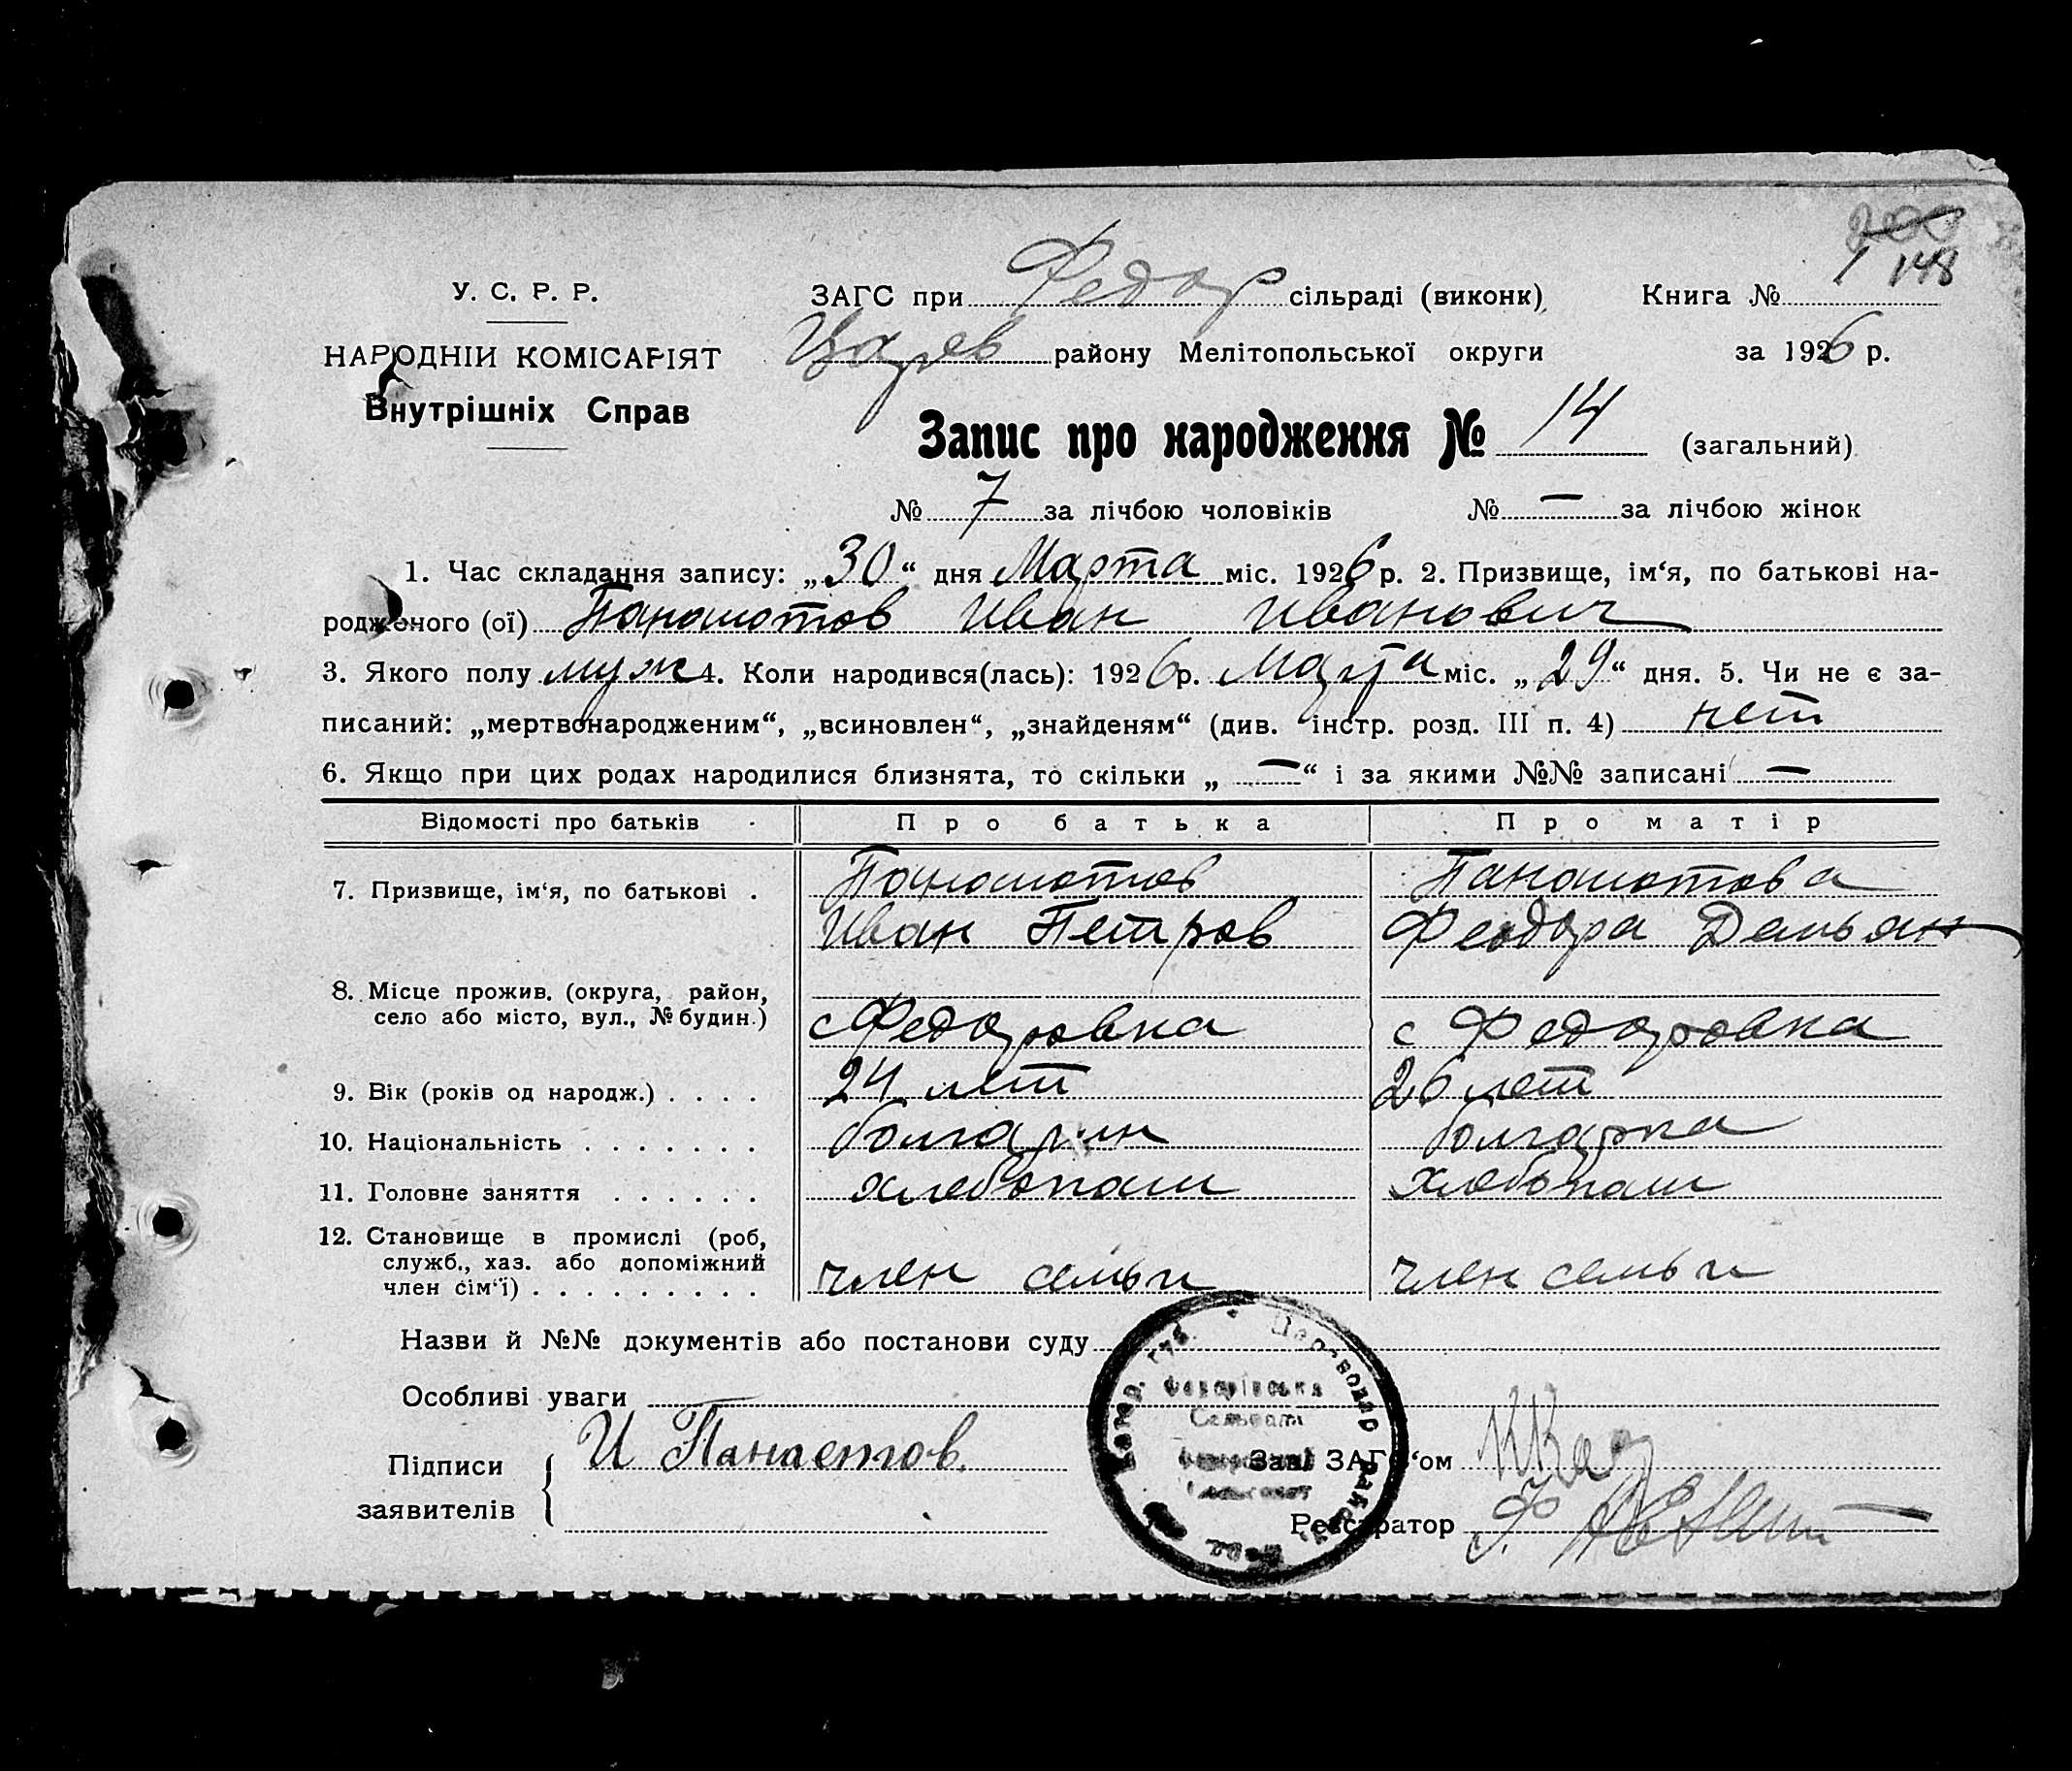 200
1 148
У. С. Р. Р.
НАРОДНІЙ КОМІСАРІЯТ
Внутрішніх Справ
ЗАГС при Федор сільраді (виконк) Книга №
Царев району Мелітопольської округи за 1926 р.
Запис про народження № 14 (загальний)
№ 7 за лічбою чоловіків № — за лічбою жінок
1. Час складання запису: „30“ дня Марта міс. 1926 р. 2. Призвище, ім‘я, по батькові на-
родженого (ої) Панаиотов Иван Иванович
3. Якого полу муж 4. Коли народився(лась): 1926 р. Марта міс. „29“ дня. 5. Чи не є за-
писаний: „мертвонародженим“, „всиновлен“, „знайденям“ (див. інстр. розд. III п. 4) нет
6. Якщо при цих родах народилися близнята, то скільки „—“ і за якими №№ записані —
Відомості про батьків Про батька Про матір
7. Призвище, ім‘я, по батькові . Панаиотов Панаиотова
Иван Петров Феодора Демьян
8. Місце прожив. (округа, район,
село або місто, вул., № будин.) с Федоровка с Федоровка
9. Вік (років од народж.) . . . . 24 лет 26 лет
10. Національність . . . . . . . болгарин болгарка
11. Головне заняття . . . . . . хлебопаш хлебопаш
12. Становище в промислі (роб,
служб., хаз. або допоміжний
член сім‘ї) . . . . . . . . . член семьи член семьи
Назви й №№ документів або постанови суду
Особливі уваги
Підписи И Панаетов.
заявителів
Зав. ЗАГС‘ом
Реєстратор